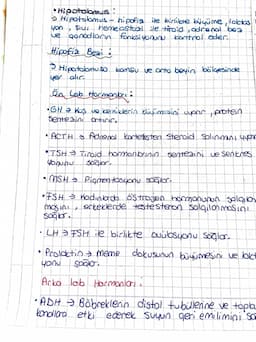 • Hipotalamus :
→ Hipotalamus - hipofiz ile birlikte büyüme, laktas
yon, sıvı homeostazı ile tiroid, adrenal bez
ve gonadların fonksiyonunu kontrol eder.
Hipofiz Bezi :
→ Hipotalamusa komşu ve orta beyin bölgesinde
yer alır.
Ön Lob Hormonları :
• GH → Kas ve kemiklerin büyümesini uyarır, protein
sentezini artırır.
• ACTH → Adrenal korteksten steroid salınımını uyarır
• TSH → Tiroid hormonlarının sentezini ve
sağlar.
• MSH → Pigmentasyonu sağlar.
• FSH → Kadınlarda östrojen hormonunun salgılan
masını, erkeklerde testesteron salgılanmasını
sağlar.
• LH → FSH ile birlikte ovülasyonu sağlar.
• Prolaktin → Meme dokusunun büyümesini ve lakt
yonu sağlar.
Arka Lob Hormonları.
• ADH → Böbreklerin distal tubullerine ve topla
kanallara etki ederek suyun geri emilimini sa